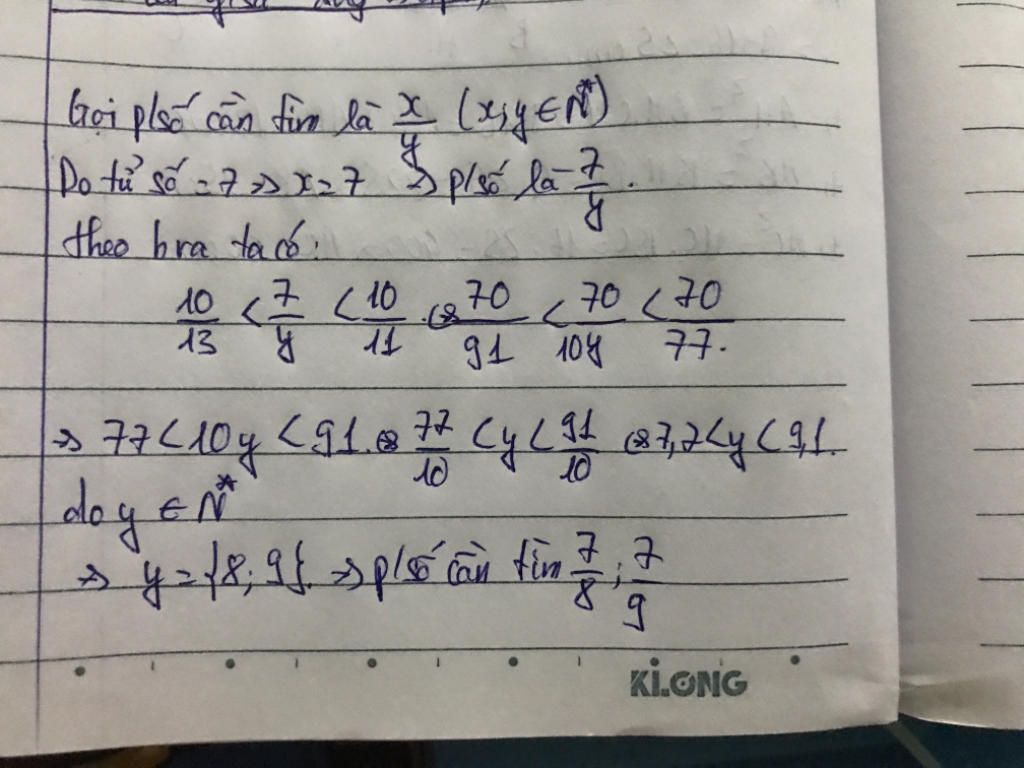 Gọi p/số cần tìm là x/y (x;y ∈ N*)
Do tử số = 7 => x = 7 => p/số là 7/y.
theo bra ta có:
10/13 < 7/y < 10/11 <=> 70/91 < 70/10y < 70/77.
=> 77 < 10y < 91 <=> 77/10 < y < 91/10 <=> 7,7 < y < 9,1.
do y ∈ N*
=> y = {8; 9}. => p/số cần tìm 7/8; 7/9
KLONG